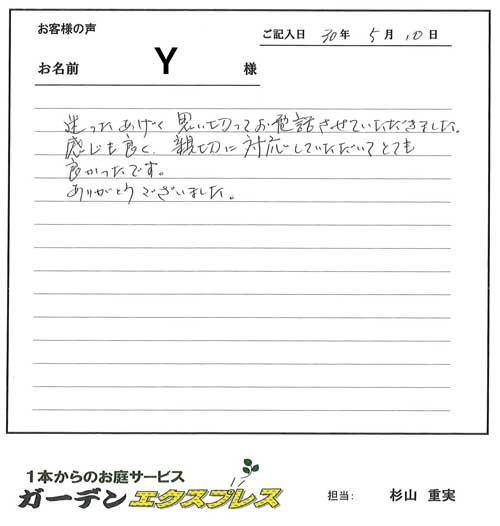 お客様の声
ご記入日 30年 5月 10日
お名前 Y 様
迷ったあげく 思い切ってお電話させていただきました。
感じも良く、親切に対応していただいてとても
良かったです。
ありがとうございました。
1本からのお庭サービス
ガーデンエクスプレス
担当: 杉山 重実